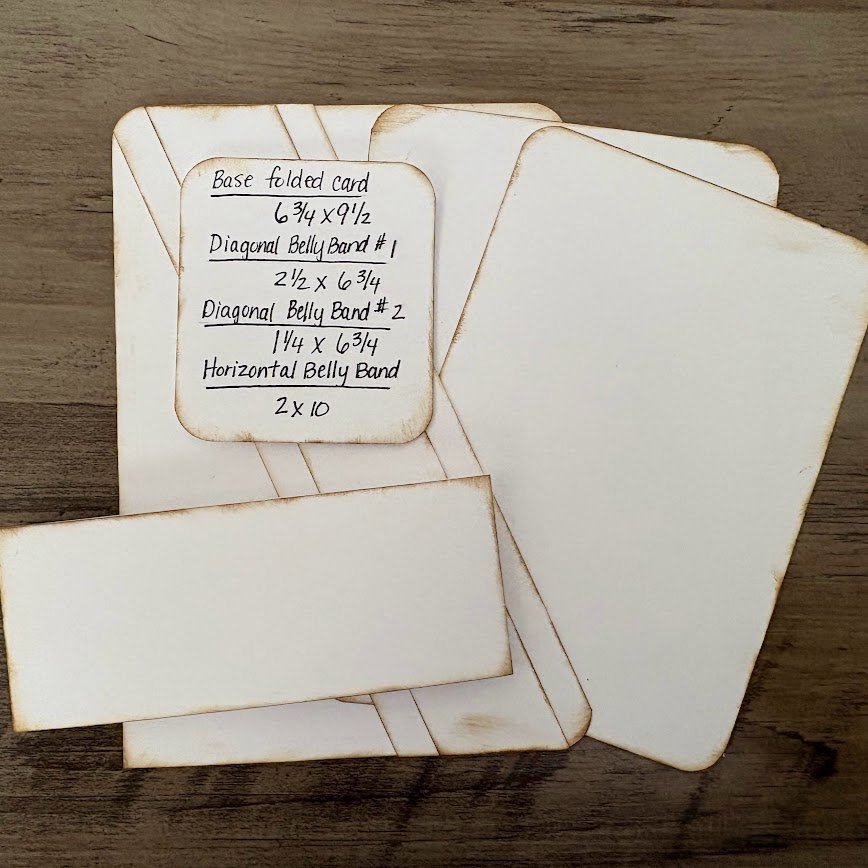 Base folded card
6 3/4 x 9 1/2
Diagonal Belly Band #1
2 1/2 x 6 3/4
Diagonal Belly Band #2
1 1/4 x 6 3/4
Horizontal Belly Band
2 x 10